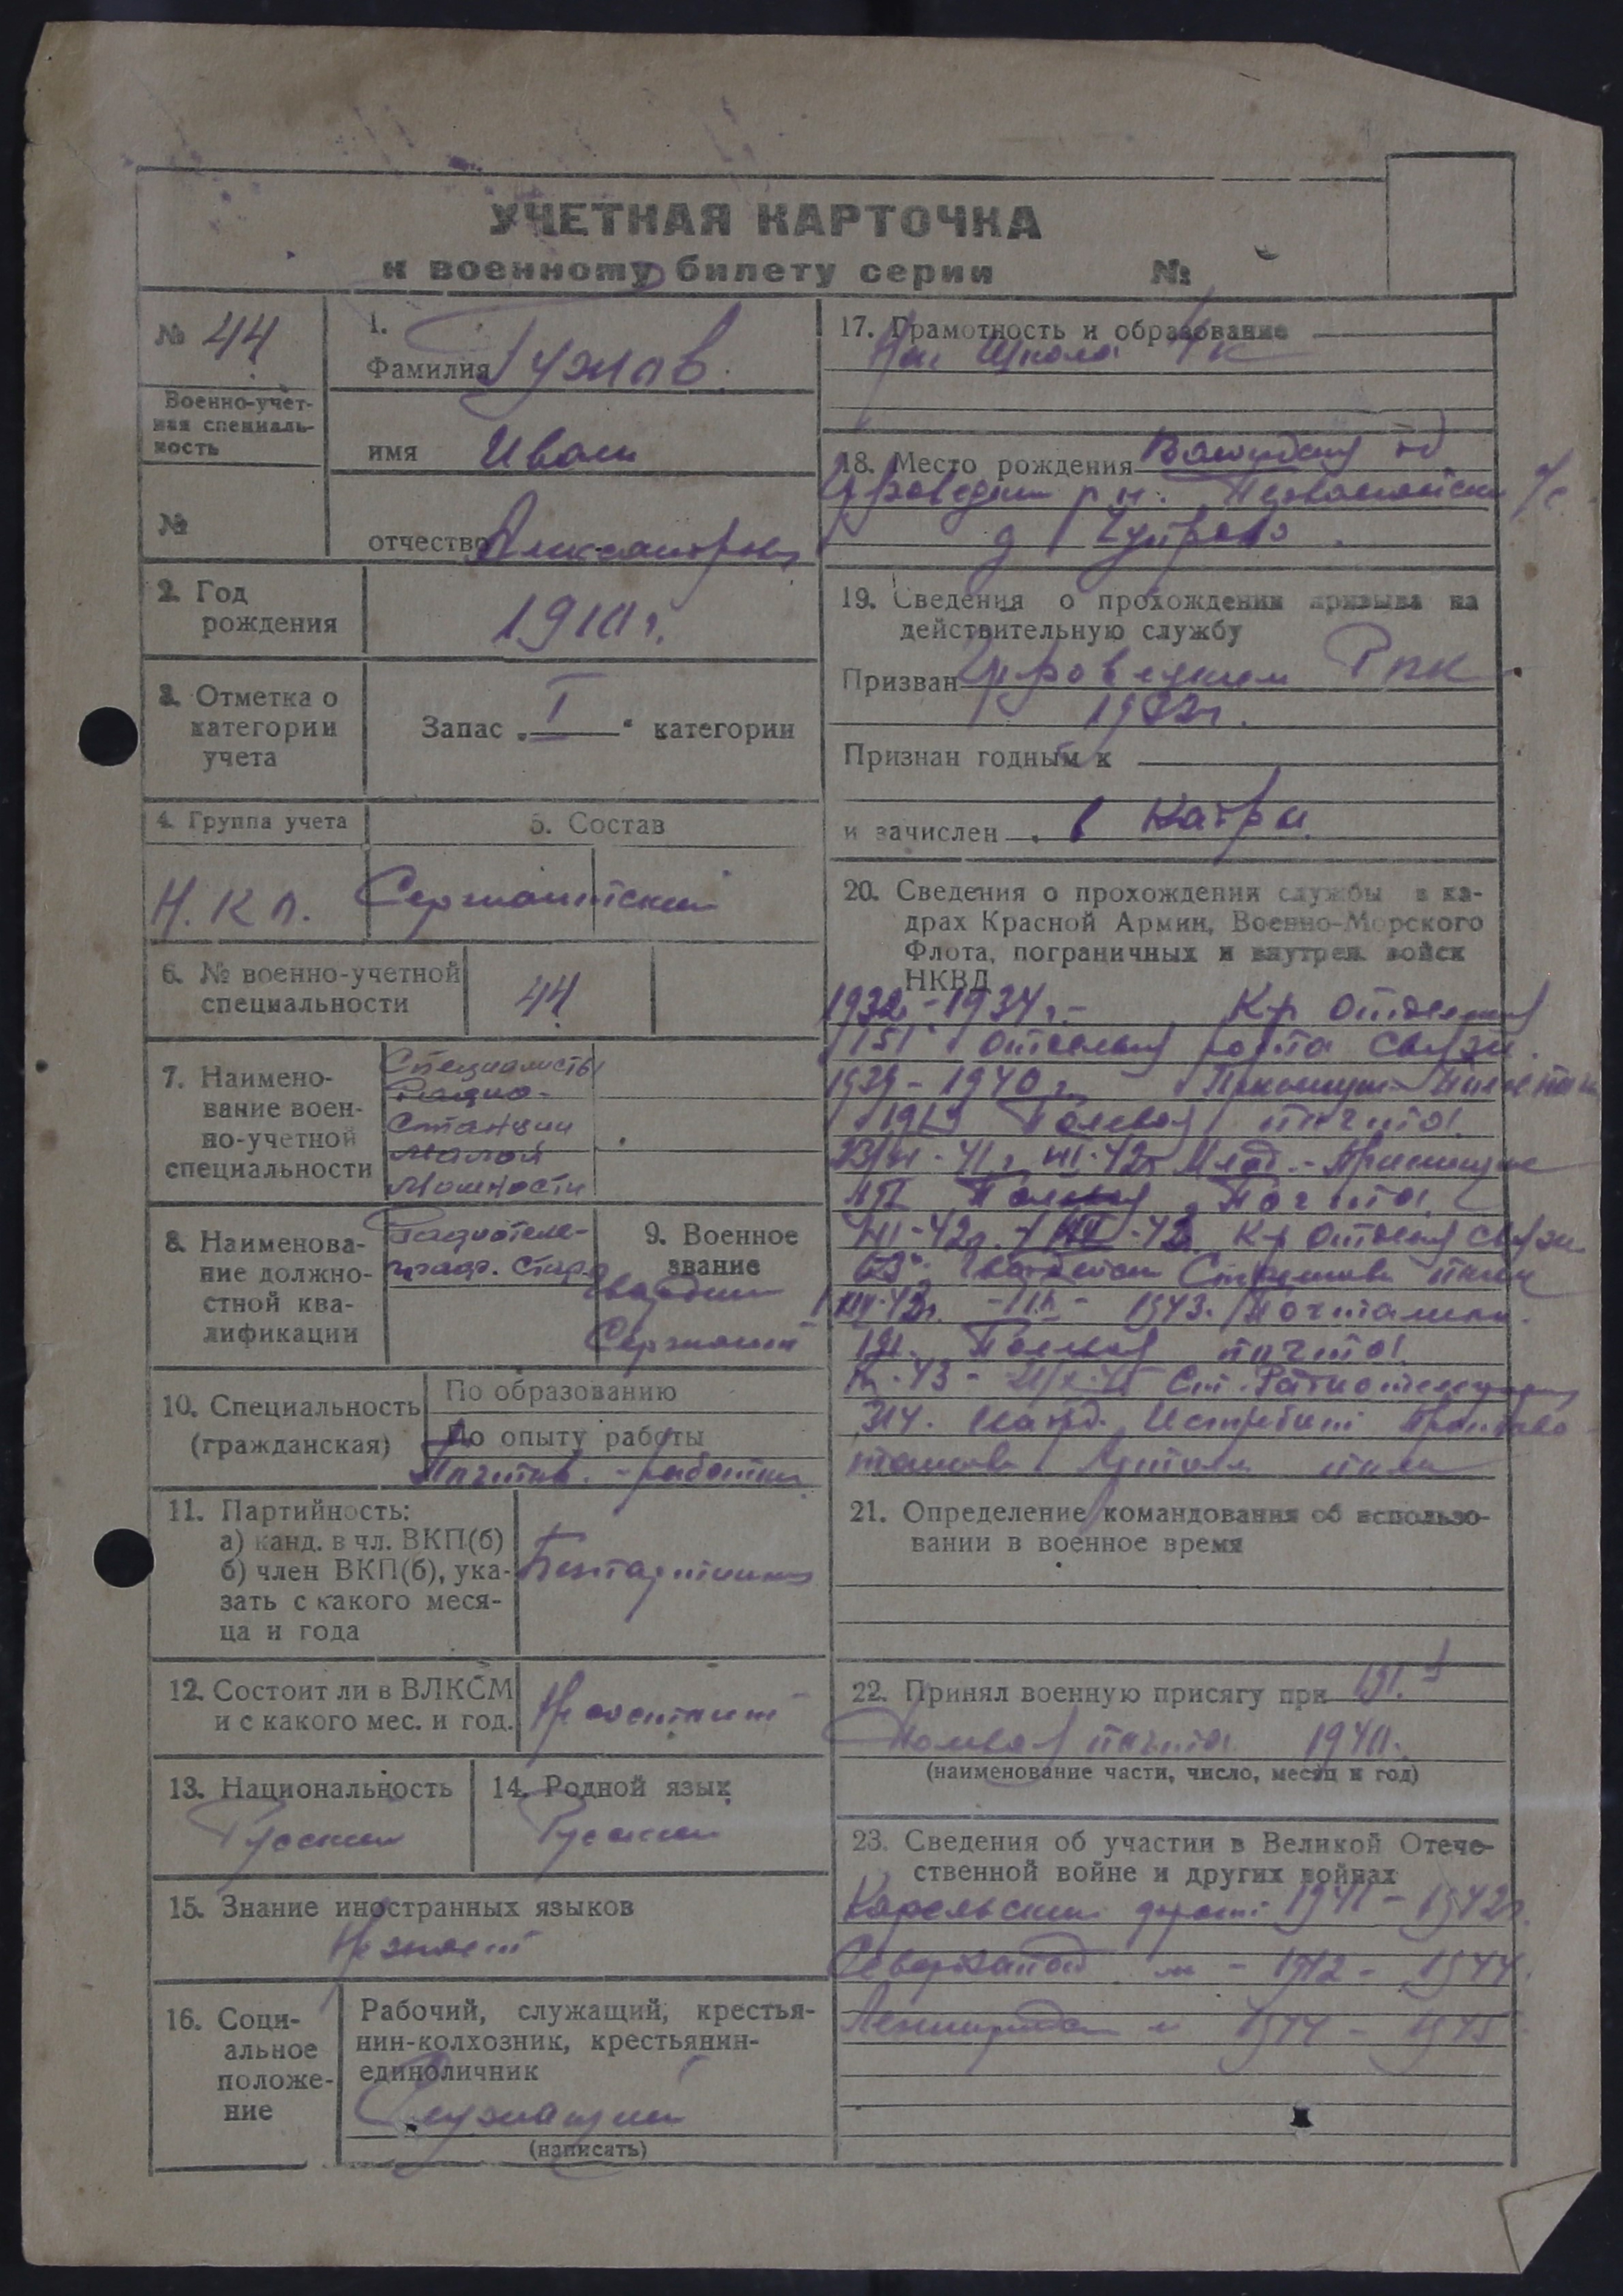 УЧЕТНАЯ КАРТОЧКА
к военному билету серии №
№ 44
Военно-учет-
ная специаль-
ность
№
1.
Фамилия Гужов
имя Иван
отчество Александрович
2. Год
рождения
1910 г.
3. Отметка о
категории
учета
Запас „ I “ категории
4. Группа учета
5. Состав
Н.К.П. Сержантский
6. № военно-учетной
специальности
44
7. Наимено-
вание воен-
но-учетной
специальности
Специалисты
Радио-
Станции
Малой
Мощности
8. Наименова-
ние должно-
стной ква-
лификации
Радиотеле-
граф. Стар.
9. Военное
звание
Гвардии
Сержант
10. Специальность
(гражданская)
По образованию
По опыту работы
Почтов. - работник
11. Партийность:
а) канд. в чл. ВКП(б)
б) член ВКП(б), ука-
зать с какого меся-
ца и года
Безпартийный
12. Состоит ли в ВЛКСМ
и с какого мес. и год.
Не состоит
13. Национальность
Русский
14. Родной язык
Русский
15. Знание иностранных языков
Не знает
16. Соци-
альное
положе-
ние
Рабочий, служащий, крестья-
нин-колхозник, крестьянин-
единоличник
Служащий
(написать)
17. Грамотность и образование
Нач школа 4 к
18. Место рождения
р н. Первомайский с/с
д Чупрово
19. Сведения о прохождении призыва на
действительную службу
Призван РВК
1932г.
Признан годным к
и зачислен в Кадры
20. Сведения о прохождении службы в ка-
драх Красной Армии, Военно-Морского
Флота, пограничных и внутрен. войск
НКВД
1932 - 1934 г. - К-р отделения
151 отдельная рота связи.
1939 - 1940 г.
Полевая почта
Млад.
Полевая Почта
К-р отделен связи
Гвардейск Стрелков полк
1943. Почтальон
191. Полевая почта
Ст. Радиотелеграфист
314. Гвард. Истребит Противо-
танков Артилл полк
21. Определение командования об использо-
вании в военное время
22. Принял военную присягу при 191.
Полевая почта 1940.
(наименование части, число, месяц и год)
23. Сведения об участии в Великой Отече-
ственной войне и других войнах
Карельский фронт 1941 - 1942г.
Северозапад - " - 1942 - 1944.
Ленинградск " 1944 - 1945